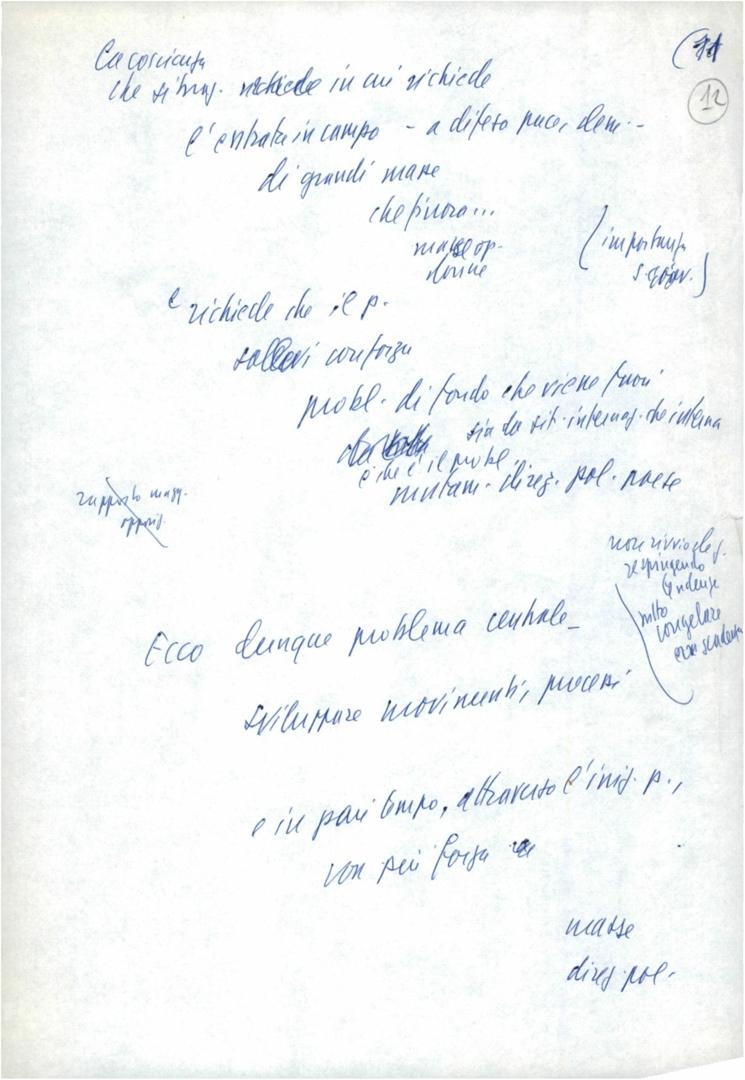 12
La coscienza
che richiede in cui richiede
l'entrata in campo - a difesa pace, dem. -
di grandi masse
che finora...
masse op.
donne
(importanza
e richiede che il p.
sollevi con forza
probl. di fondo che viene fuori
sia da sit. internaz. che interna
e che è il probl.
mutam. direz. pol. paese
rapporto magg.
oppos.
non rinvio
respingendo
tendenze
congelare
Ecco dunque problema centrale -
sviluppare movimenti, processi
e in pari tempo, attraverso l'iniz. p.,
con più forza
masse
direz. pol.